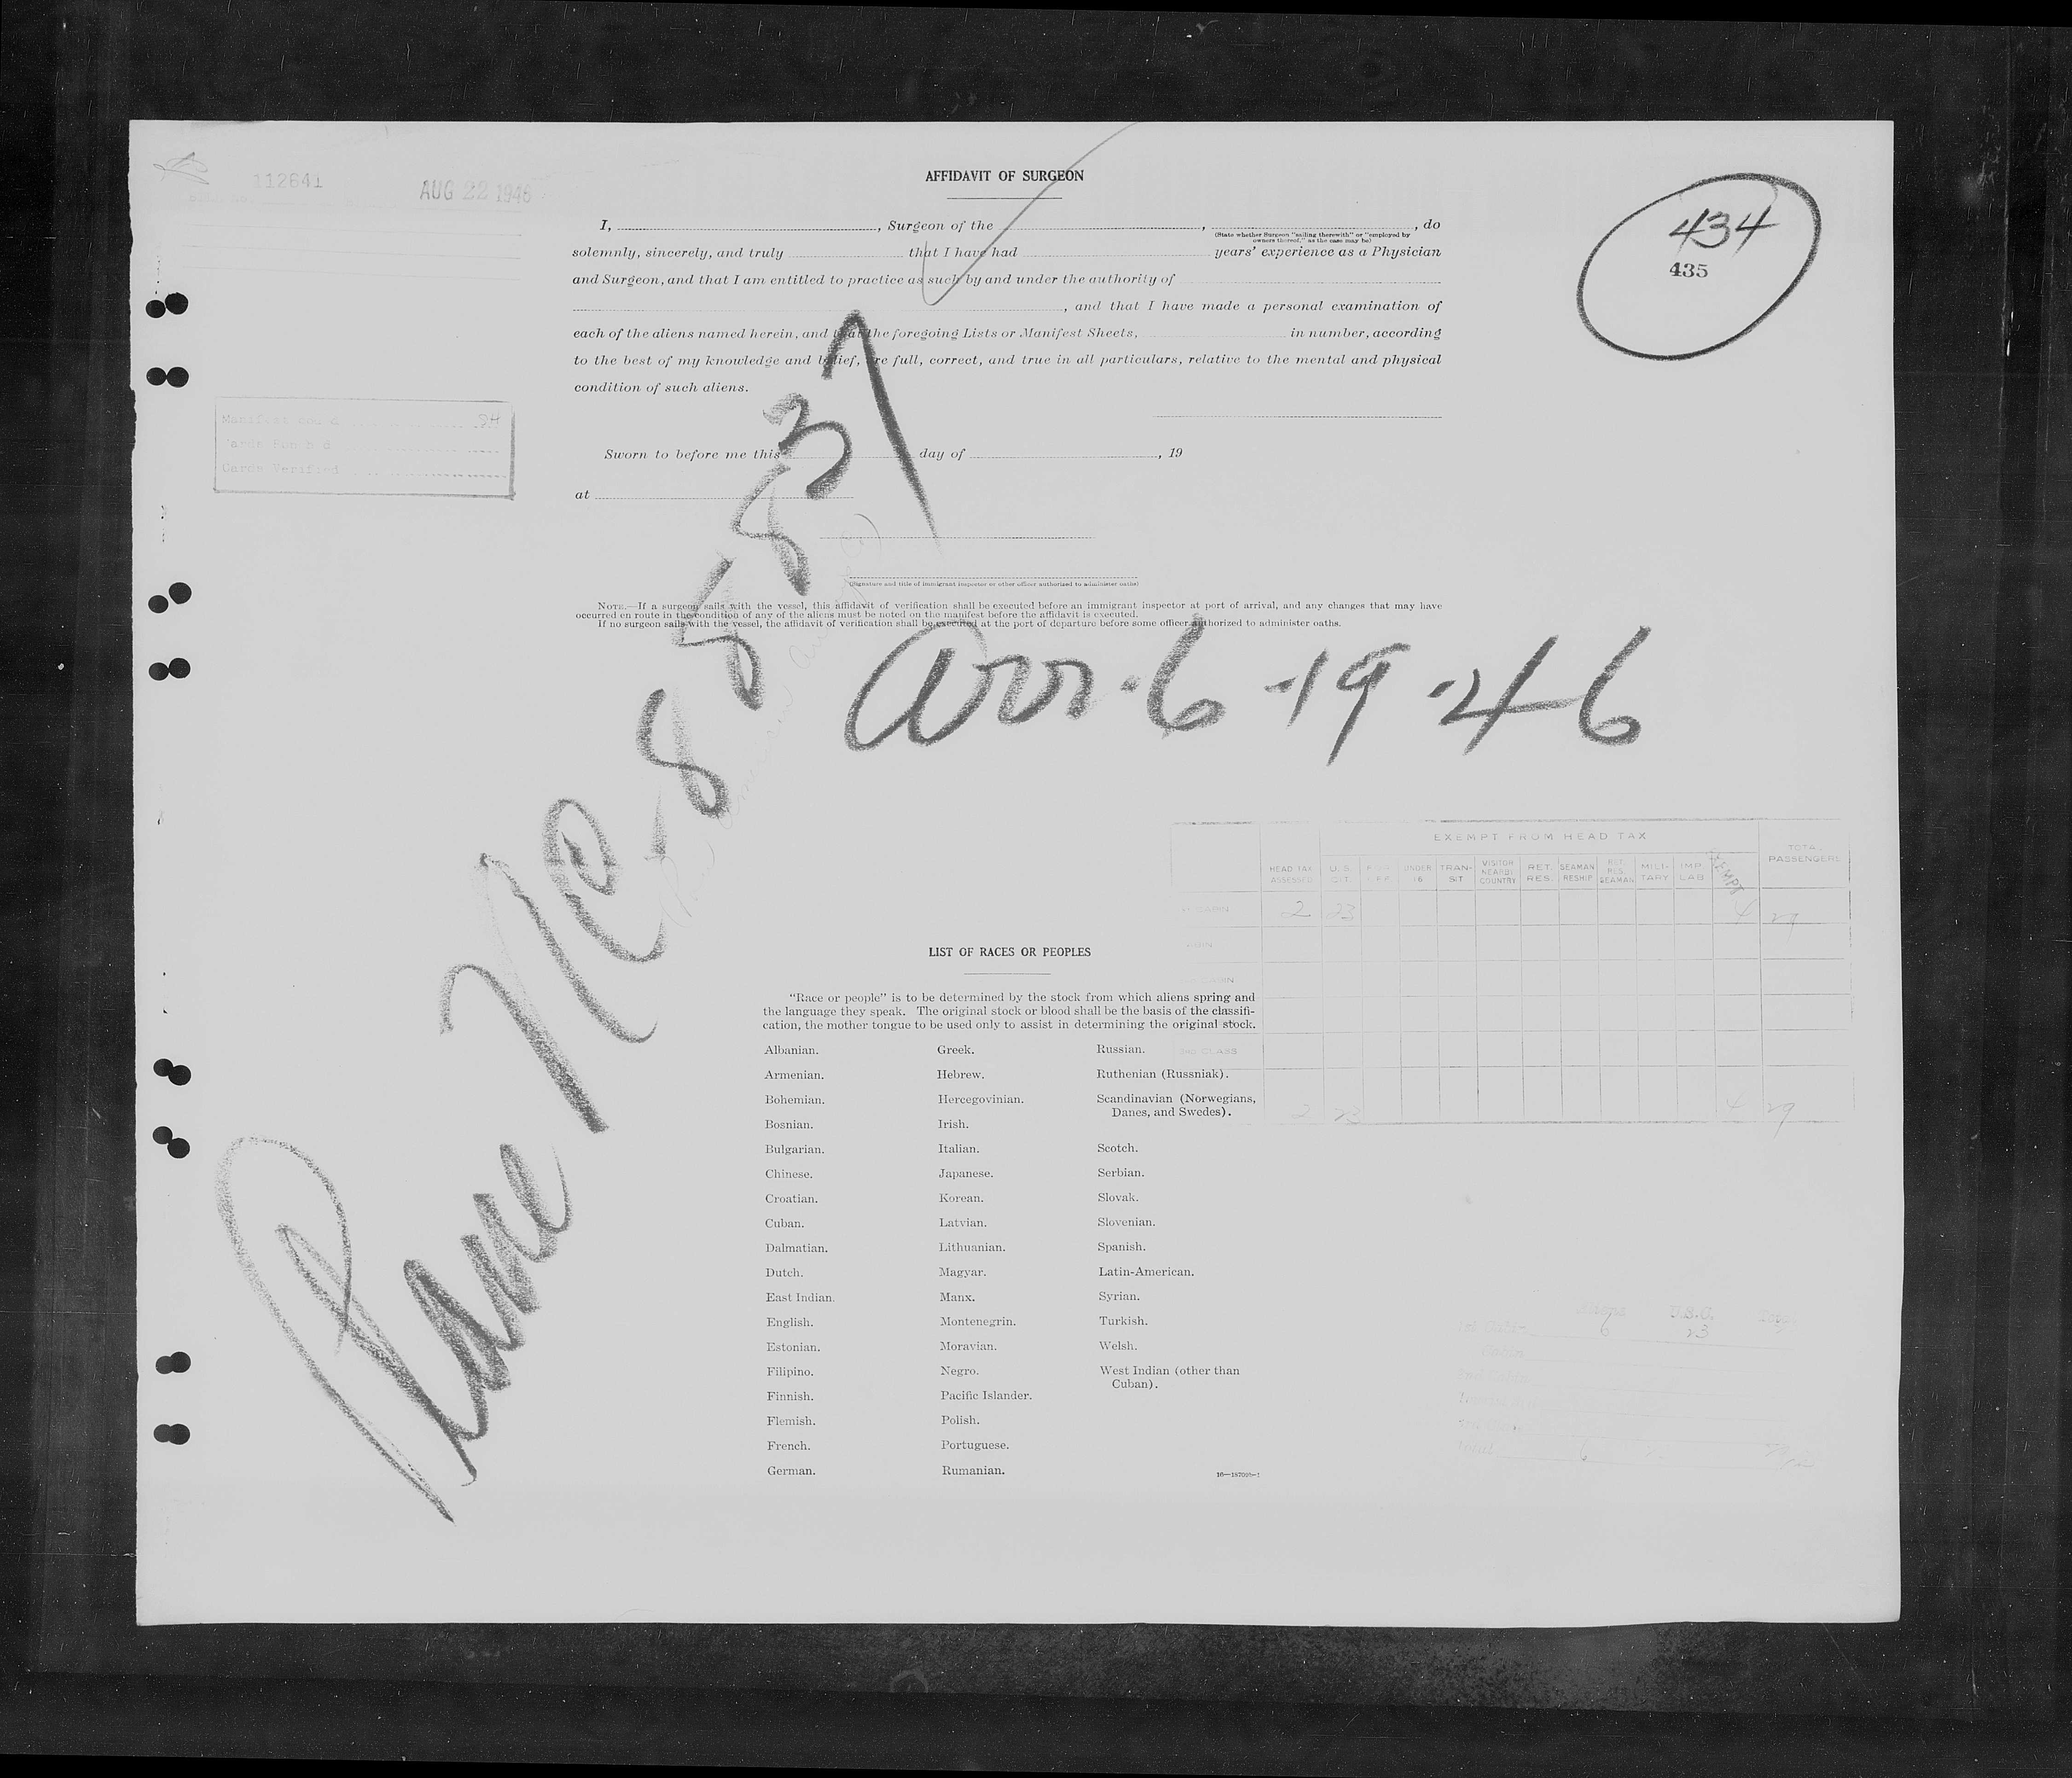 112641
AUG 22 1946
434
435
AFFIDAVIT OF SURGEON
I, , Surgeon of the , , do
(State whether Surgeon "sailing therewith" or "employed by
owners thereof," as the case may be)
solemnly, sincerely, and truly that I have had years' experience as a Physician
and Surgeon, and that I am entitled to practice as such by and under the authority of
, and that I have made a personal examination of
each of the aliens named herein, and that the foregoing Lists or Manifest Sheets, in number, according
to the best of my knowledge and belief, are full, correct, and true in all particulars, relative to the mental and physical
condition of such aliens.
Manifest 94
Cards Verified
Sworn to before me this day of , 19
at
(Signature and title of immigrant inspector or other officer authorized to administer oaths)
NOTE.—If a surgeon sails with the vessel, this affidavit of verification shall be executed before an immigrant inspector at port of arrival, and any changes that may have
occurred en route in the condition of any of the aliens must be noted on the manifest before the affidavit is executed.
If no surgeon sails with the vessel, the affidavit of verification shall be executed at the port of departure before some officer authorized to administer oaths.
Plane NC-88837
arr. 6-19-46
EXEMPT FROM HEAD TAX
HEAD TAX ASSESSED U.S. CIT. UNDER 16 TRAN-SIT VISITOR NEARBY COUNTRY RET. RES. SEAMAN RESHIP RET. RES. SEAMAN MILI-TARY IMP. LAB. EXEMPT TOTAL PASSENGERS
CABIN 2 23 4 29
CABIN
3RD CLASS
2 23 4 29
LIST OF RACES OR PEOPLES
"Race or people" is to be determined by the stock from which aliens spring and
the language they speak. The original stock or blood shall be the basis of the classifi-
cation, the mother tongue to be used only to assist in determining the original stock.
Albanian. Greek. Russian.
Armenian. Hebrew. Ruthenian (Russniak).
Bohemian. Hercegovinian. Scandinavian (Norwegians,
Danes, and Swedes).
Bosnian. Irish.
Bulgarian. Italian. Scotch.
Chinese. Japanese. Serbian.
Croatian. Korean. Slovak.
Cuban. Latvian. Slovenian.
Dalmatian. Lithuanian. Spanish.
Dutch. Magyar. Latin-American.
East Indian. Manx. Syrian.
English. Montenegrin. Turkish.
Estonian. Moravian. Welsh.
Filipino. Negro. West Indian (other than
Cuban).
Finnish. Pacific Islander.
Flemish. Polish.
French. Portuguese.
German. Rumanian.
Aliens U.S.C.
6 23
Total 6